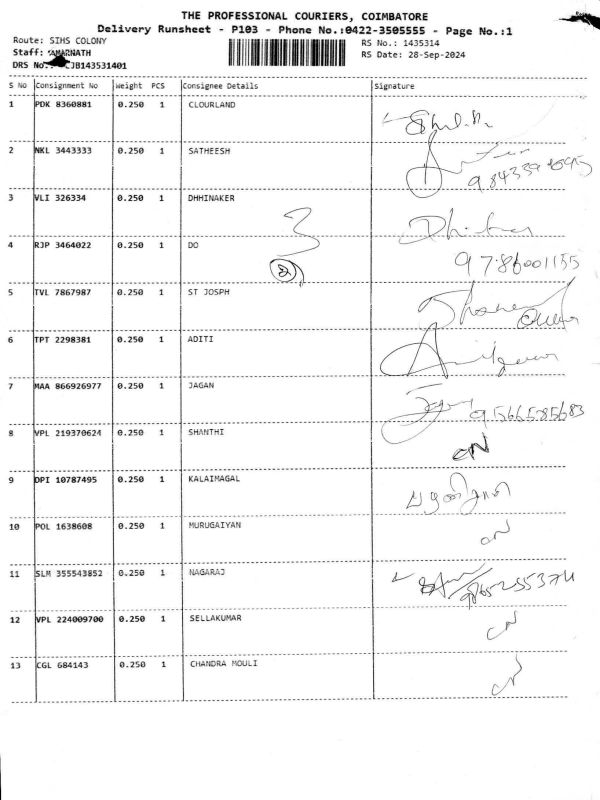 THE PROFESSIONAL COURIERS, COIMBATORE
Delivery Runsheet - P103 - Phone No.:0422-3505555 - Page No.:1
Route: SIHS COLONY
RS No.: 1435314
Staff: AMARNATH
RS Date: 28-Sep-2024
DRS No.: CJB143531401
S No Consignment No Weight PCS Consignee Details Signature
1 PDK 8360881 0.250 1 CLOURLAND
2 NKL 3443333 0.250 1 SATHEESH
3 VLI 326334 0.250 1 DHHINAKER
3
4 RJP 3464022 0.250 1 DO 9786001155
5 TVL 7867987 0.250 1 ST JOSPH
6 TPT 2298381 0.250 1 ADITI
7 MAA 866926977 0.250 1 JAGAN 9566585683
8 VPL 219370624 0.250 1 SHANTHI CN
9 DPI 10787495 0.250 1 KALAIMAGAL
10 POL 1638608 0.250 1 MURUGAIYAN CN
11 SLM 355543852 0.250 1 NAGARAJ
12 VPL 224009700 0.250 1 SELLAKUMAR CN
13 CGL 684143 0.250 1 CHANDRA MOULI CN